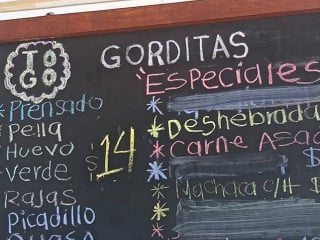 TO
GO
GORDITAS
"Especiales
*Prensado
*Pella
*Huevo
*Verde
*Rajas
*Picadillo
$14
*Deshebrada
*Carne Asad
*Machaca c/H $